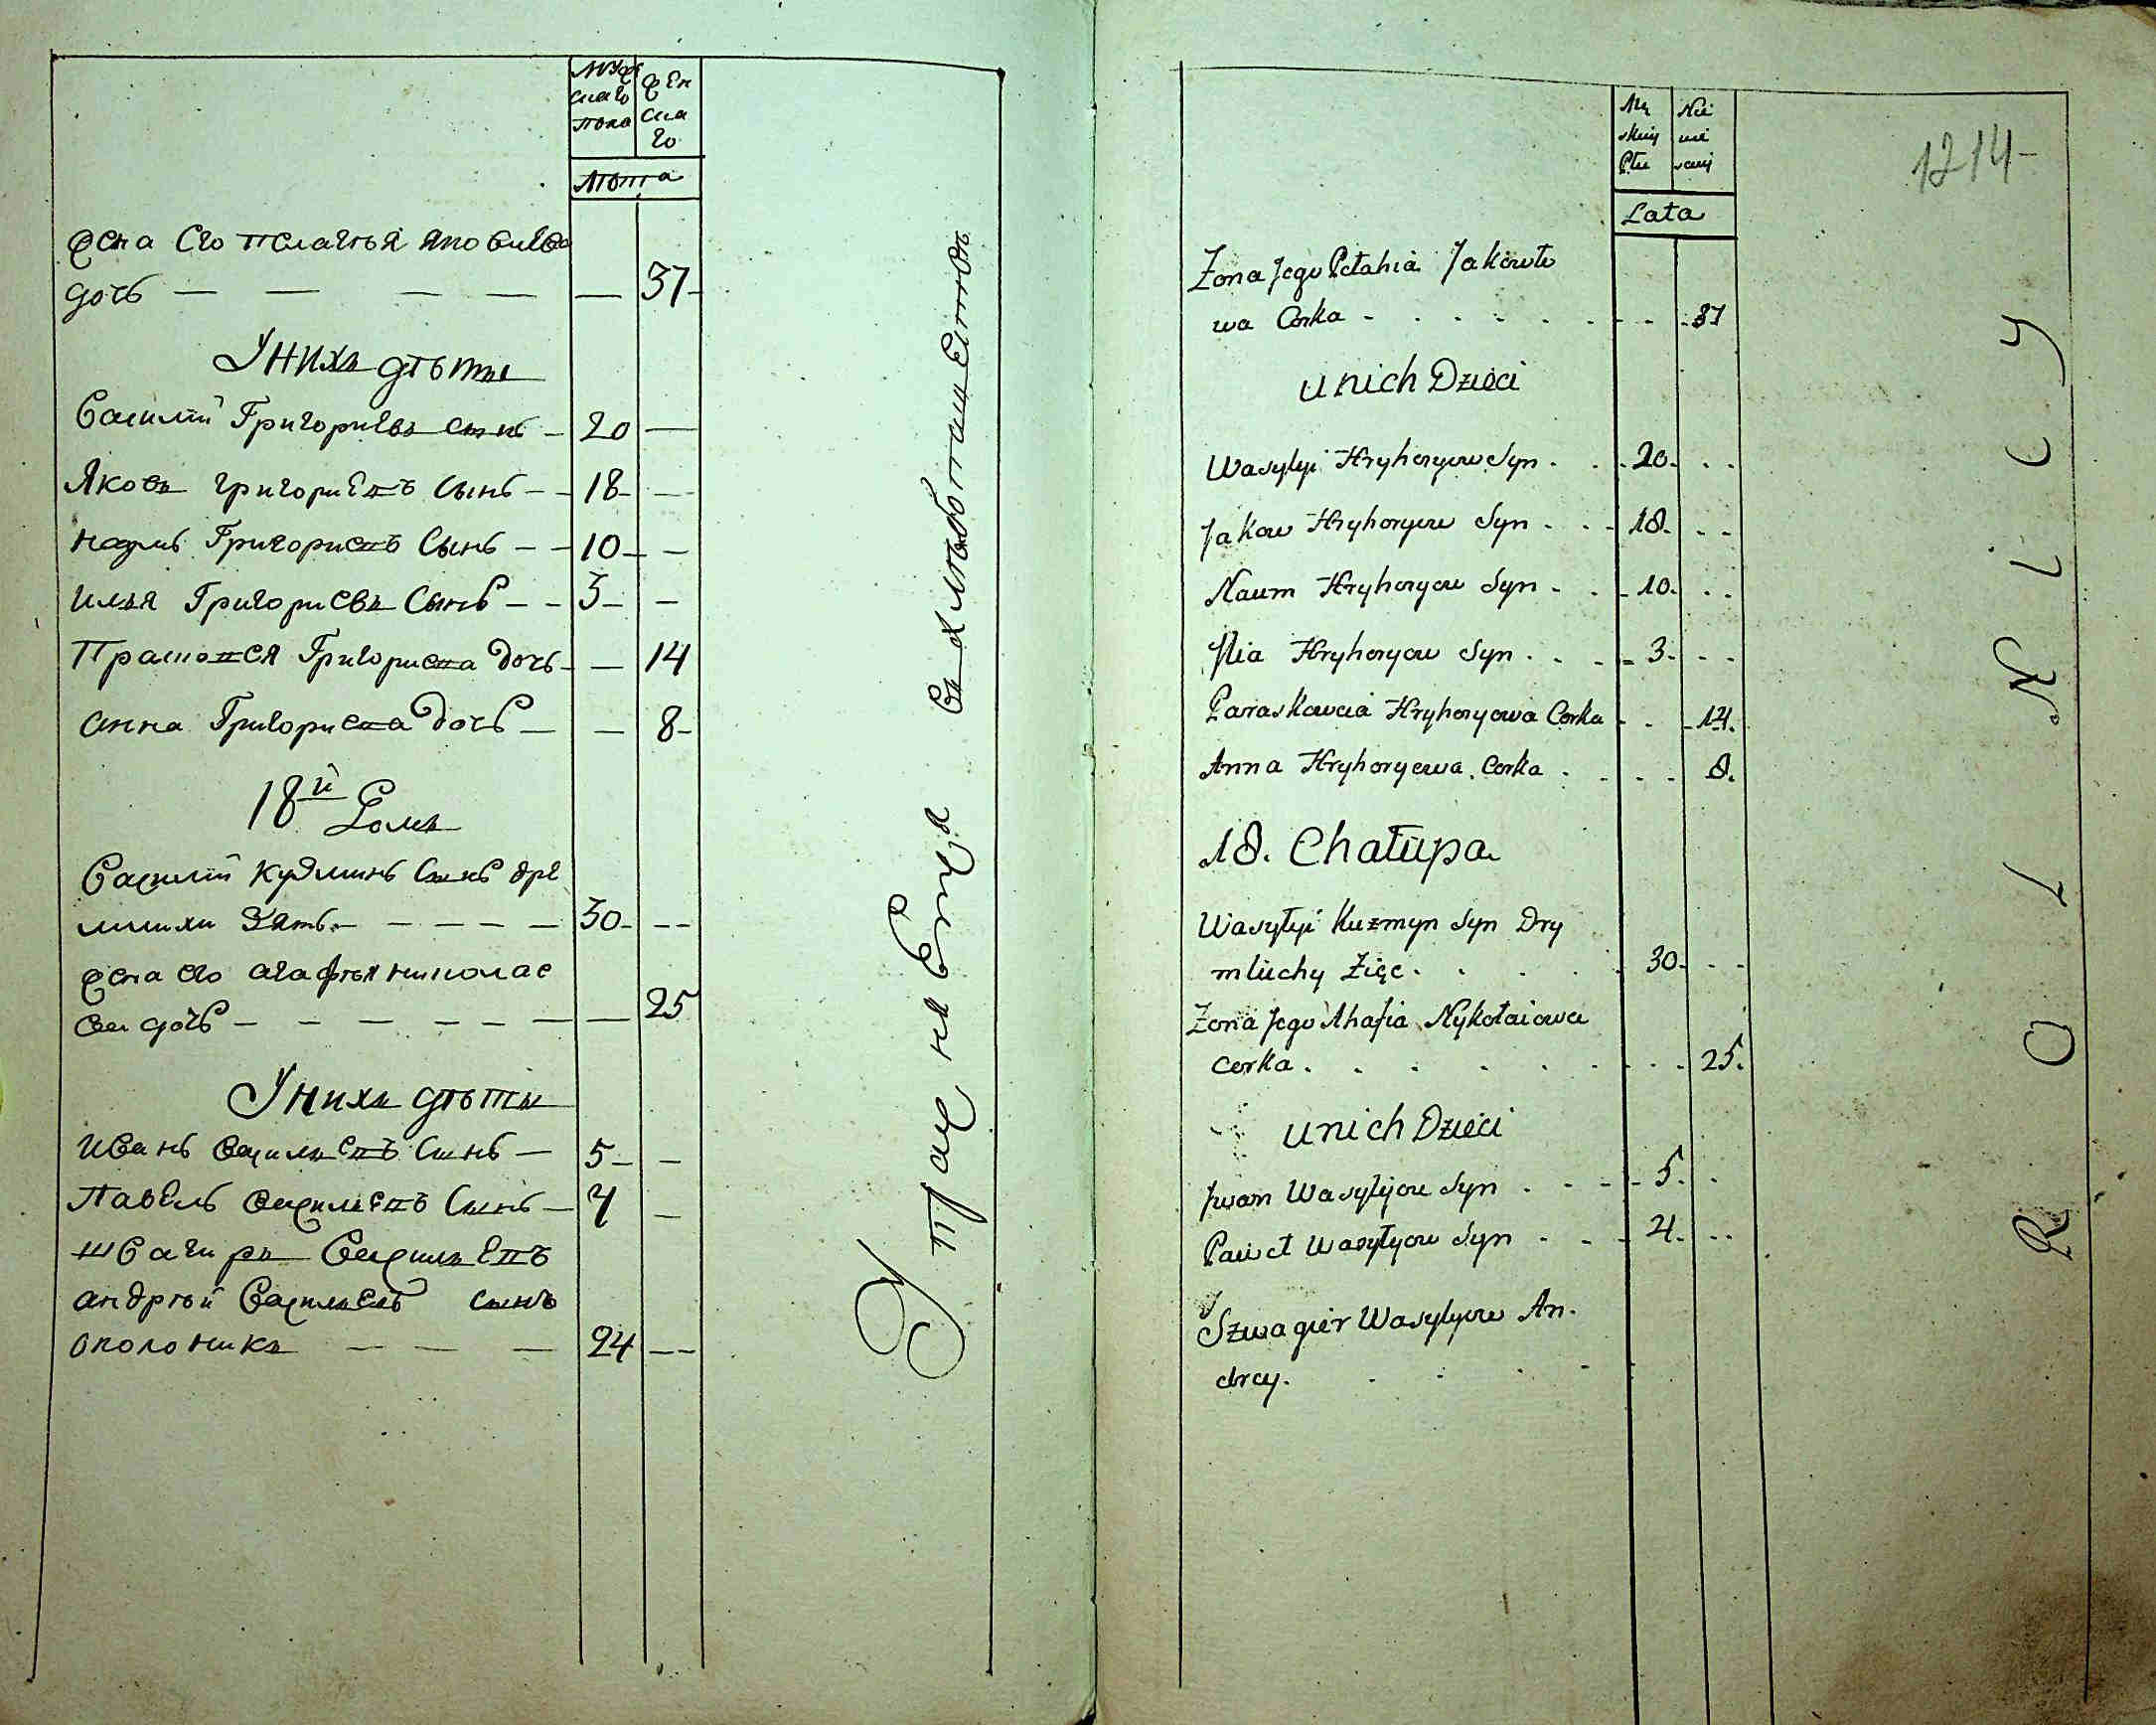 мужскаго пола
женскаго
лѣта
жена его пелагѣя яковлева
дочь — — — — — 37
У нихъ дѣти
Василий Григориевъ сынъ — 20 —
Яковъ григориевъ сынъ — 18 —
наумъ Григориевъ Сынъ — 10 —
илья Григориевъ Сынъ — 3 —
Прасковея Григориева дочь — 14
анна Григориева дочь — 8
18й Домъ
Василий кузминъ сынъ дре
млюхи зять — — — 30 —
жена его агафѣя николае
ва дочь — — — — — 25
У нихъ дѣти
иванъ василиевъ сынъ — 5 —
павелъ василиевъ сынъ — 4 —
швагиръ василиевъ
андрѣй василиевъ сынъ
околоника — — — 24 —
Męskiey Płci
Niewieściey
Lata
1214
Zona Jego Pełahia Jakowle
wa Corka - 37
u nich Dzieci
Wasylyi Hryhoryow Syn . . 20. . .
Jakow Hryhoryow Syn . . 18. . .
Naum Hryhoryow Syn . . 10. . .
Ilia Hryhoryow Syn . . . 3. . .
Paraskowia Hryhoryowa Corka . . 14.
Anna Hryhoryowa Corka . . . 8.
18. Chałupa
Wasylyi Kuzmyn Syn Dry
mluchy Zięc . . . . 30. . .
Zona Jego Ahafia Nykołaiowa
corka . . . . . . . 25.
u nich Dzieci
Jwan Wasylyow Syn . . . 5. .
Paweł Wasylyow Syn . . . 4. . .
Szwagier Wasylyow An.
drey. . . .
ROLNICY